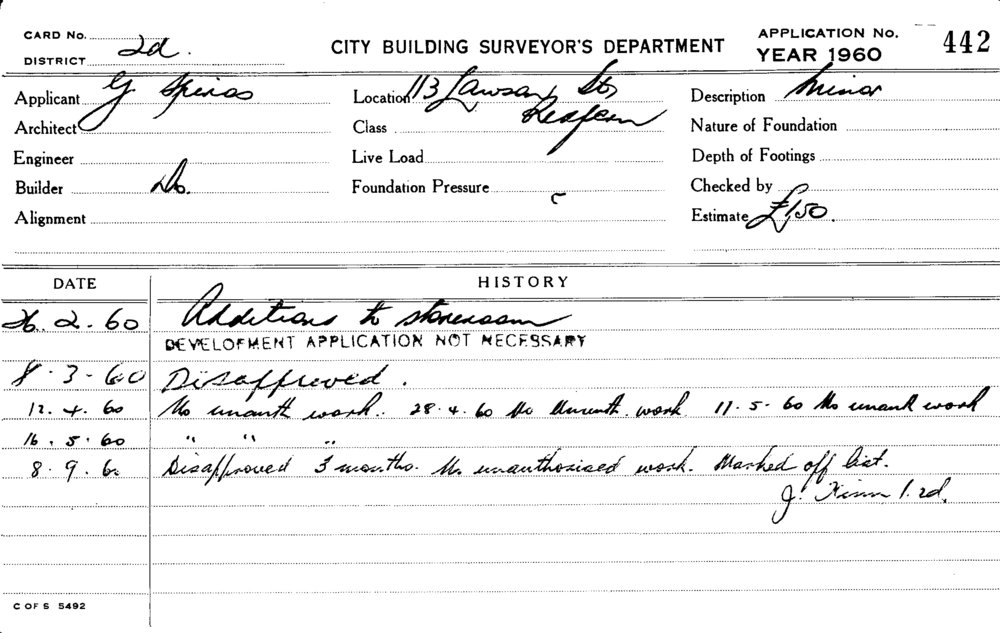 CARD No.
DISTRICT 2d.
CITY BUILDING SURVEYOR'S DEPARTMENT
APPLICATION No. 442
YEAR 1960
Applicant G. Spiros
Location 113 Lawson St,
Redfern
Description Minor
Architect
Class
Nature of Foundation
Engineer
Live Load
Depth of Footings
Builder Do.
Foundation Pressure
Checked by
Alignment
Estimate £150.
DATE HISTORY
26.2.60 Additions to storeroom
DEVELOPMENT APPLICATION NOT NECESSARY
8.3.60 Disapproved.
12.4.60 No unauth work. 28.4.60 No unauth. work 11.5.60 No unauth work
16.5.60 " " "
8.9.60 Disapproved 3 months. No unauthorised work. Marked off list.
J. 2d.
C OF S 5492